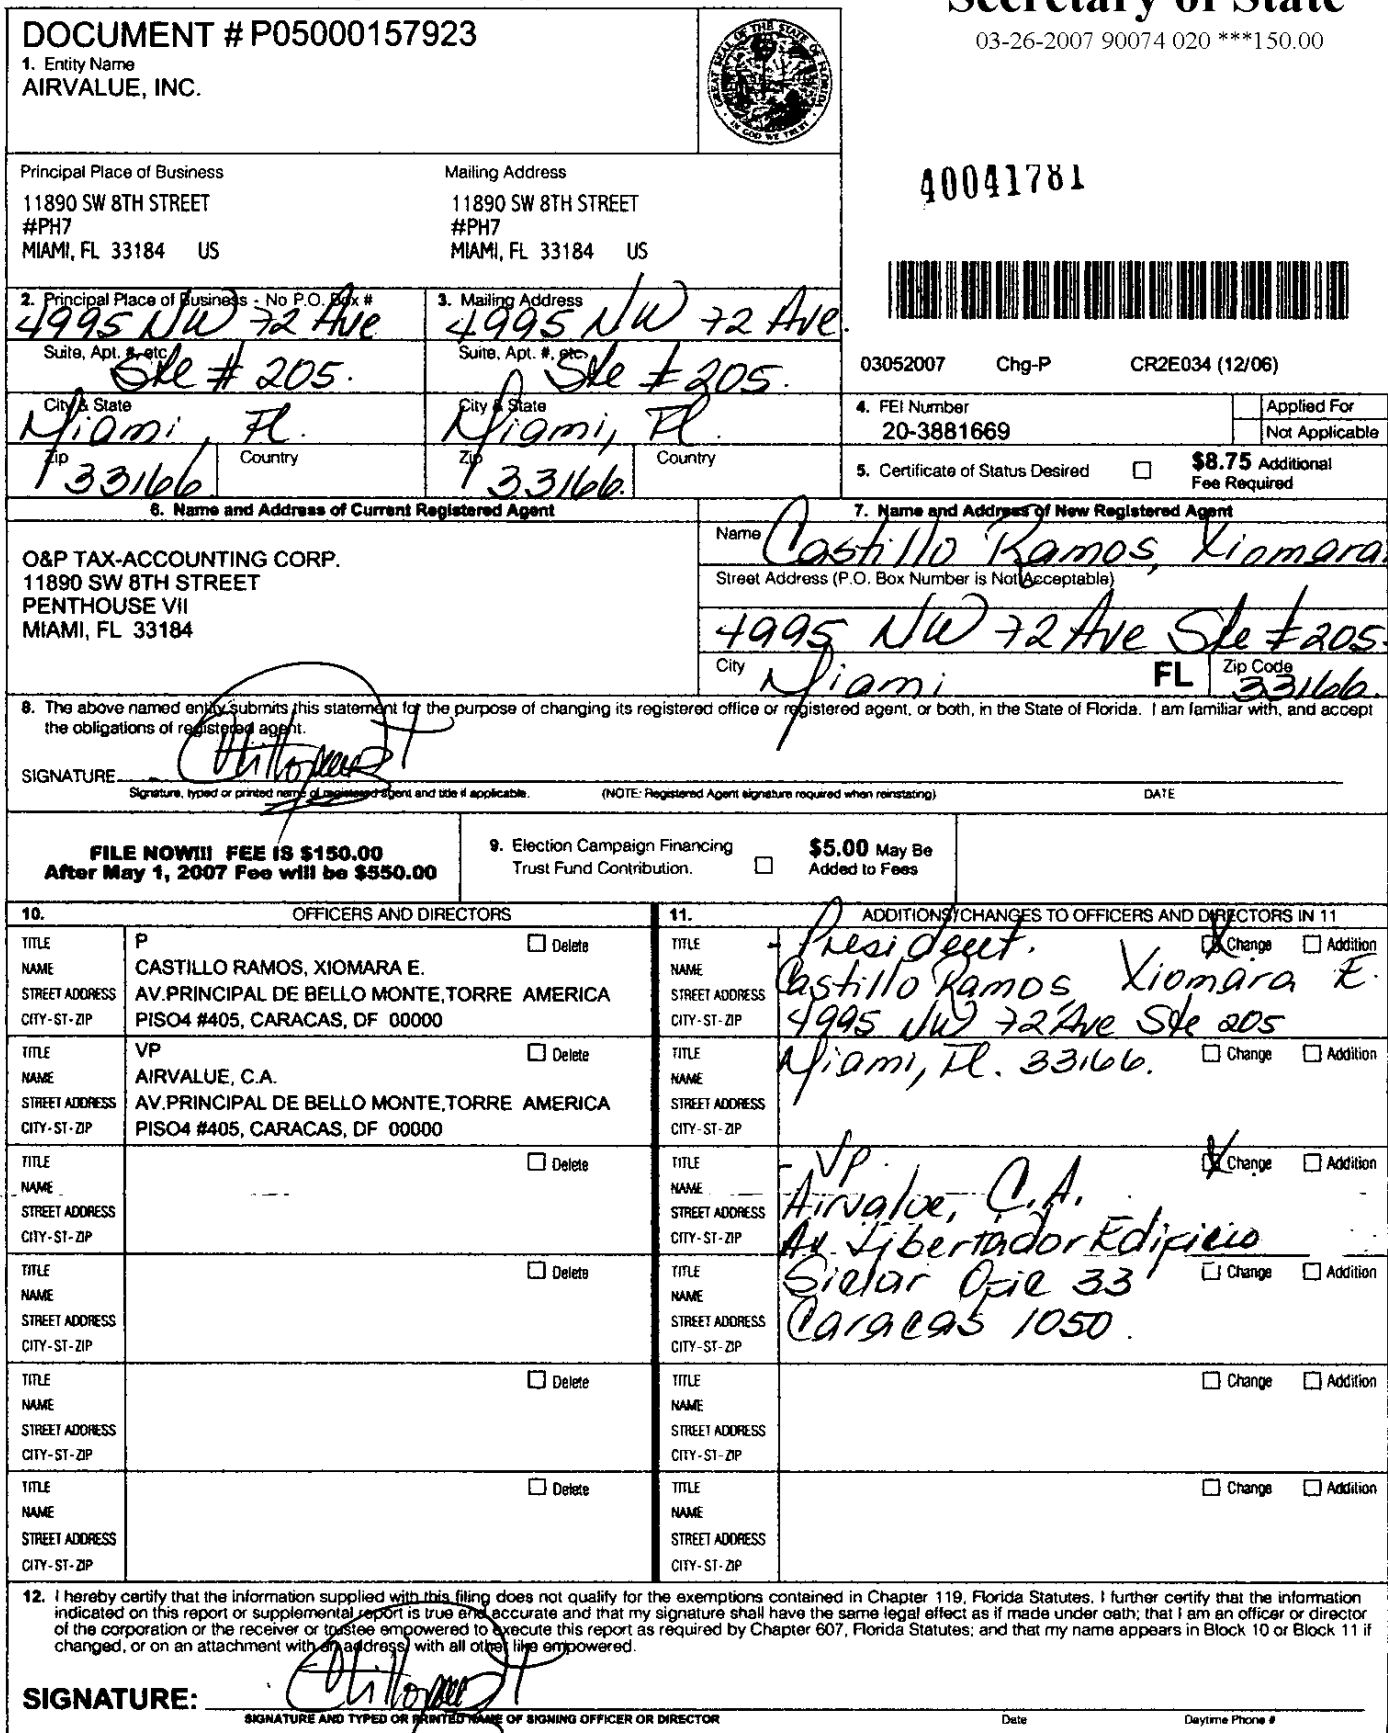 Secretary of State
03-26-2007 90074 020 ***150.00
DOCUMENT # P05000157923
1. Entity Name
AIRVALUE, INC.
GREAT SEAL OF THE STATE OF FLORIDA
IN GOD WE TRUST
40041781
Principal Place of Business
11890 SW 8TH STREET
#PH7
MIAMI, FL 33184 US
Mailing Address
11890 SW 8TH STREET
#PH7
MIAMI, FL 33184 US
2. Principal Place of Business - No P.O. Box #
4995 NW 72 Ave
Suite, Apt. #, etc.
Ste # 205.
City & State
Miami, Fl.
Zip
33166.
Country
3. Mailing Address
4995 NW 72 Ave.
Suite, Apt. #, etc.
Ste # 205.
City & State
Miami, Fl.
Zip
33166.
Country
03052007 Chg-P CR2E034 (12/06)
4. FEI Number
20-3881669
Applied For
Not Applicable
5. Certificate of Status Desired
$8.75 Additional
Fee Required
6. Name and Address of Current Registered Agent
O&P TAX-ACCOUNTING CORP.
11890 SW 8TH STREET
PENTHOUSE VII
MIAMI, FL 33184
7. Name and Address of New Registered Agent
Name Castillo Ramos, Xiomara
Street Address (P.O. Box Number is Not Acceptable)
4995 NW 72 Ave Ste # 205.
City Miami FL Zip Code 33166.
8. The above named entity submits this statement for the purpose of changing its registered office or registered agent, or both, in the State of Florida. I am familiar with, and accept
the obligations of registered agent.
SIGNATURE
Signature, typed or printed name of registered agent and title if applicable. (NOTE: Registered Agent signature required when reinstating) DATE
FILE NOW!!! FEE IS $150.00
After May 1, 2007 Fee will be $550.00
9. Election Campaign Financing
Trust Fund Contribution.
$5.00 May Be
Added to Fees
10. OFFICERS AND DIRECTORS
TITLE P Delete
NAME CASTILLO RAMOS, XIOMARA E.
STREET ADDRESS AV.PRINCIPAL DE BELLO MONTE,TORRE AMERICA
CITY-ST-ZIP PISO4 #405, CARACAS, DF 00000
TITLE VP Delete
NAME AIRVALUE, C.A.
STREET ADDRESS AV.PRINCIPAL DE BELLO MONTE,TORRE AMERICA
CITY-ST-ZIP PISO4 #405, CARACAS, DF 00000
TITLE Delete
NAME
STREET ADDRESS
CITY-ST-ZIP
TITLE Delete
NAME
STREET ADDRESS
CITY-ST-ZIP
TITLE Delete
NAME
STREET ADDRESS
CITY-ST-ZIP
TITLE Delete
NAME
STREET ADDRESS
CITY-ST-ZIP
11. ADDITIONS/CHANGES TO OFFICERS AND DIRECTORS IN 11
TITLE - President. X Change Addition
NAME Castillo Ramos, Xiomara E.
STREET ADDRESS
CITY-ST-ZIP 4995 NW 72 Ave Ste 205
TITLE Miami, Fl. 33166. Change Addition
NAME
STREET ADDRESS
CITY-ST-ZIP
TITLE - VP. X Change Addition
NAME
STREET ADDRESS Airvalue, C.A.
CITY-ST-ZIP Av. Libertador Edificio
TITLE Sielar Ofic 33 Change Addition
NAME
STREET ADDRESS Caracas 1050.
CITY-ST-ZIP
TITLE Change Addition
NAME
STREET ADDRESS
CITY-ST-ZIP
TITLE Change Addition
NAME
STREET ADDRESS
CITY-ST-ZIP
12. I hereby certify that the information supplied with this filing does not qualify for the exemptions contained in Chapter 119, Florida Statutes. I further certify that the information
indicated on this report or supplemental report is true and accurate and that my signature shall have the same legal effect as if made under oath; that I am an officer or director
of the corporation or the receiver or trustee empowered to execute this report as required by Chapter 607, Florida Statutes; and that my name appears in Block 10 or Block 11 if
changed, or on an attachment with an address, with all other like empowered.
SIGNATURE:
SIGNATURE AND TYPED OR PRINTED NAME OF SIGNING OFFICER OR DIRECTOR Date Daytime Phone #